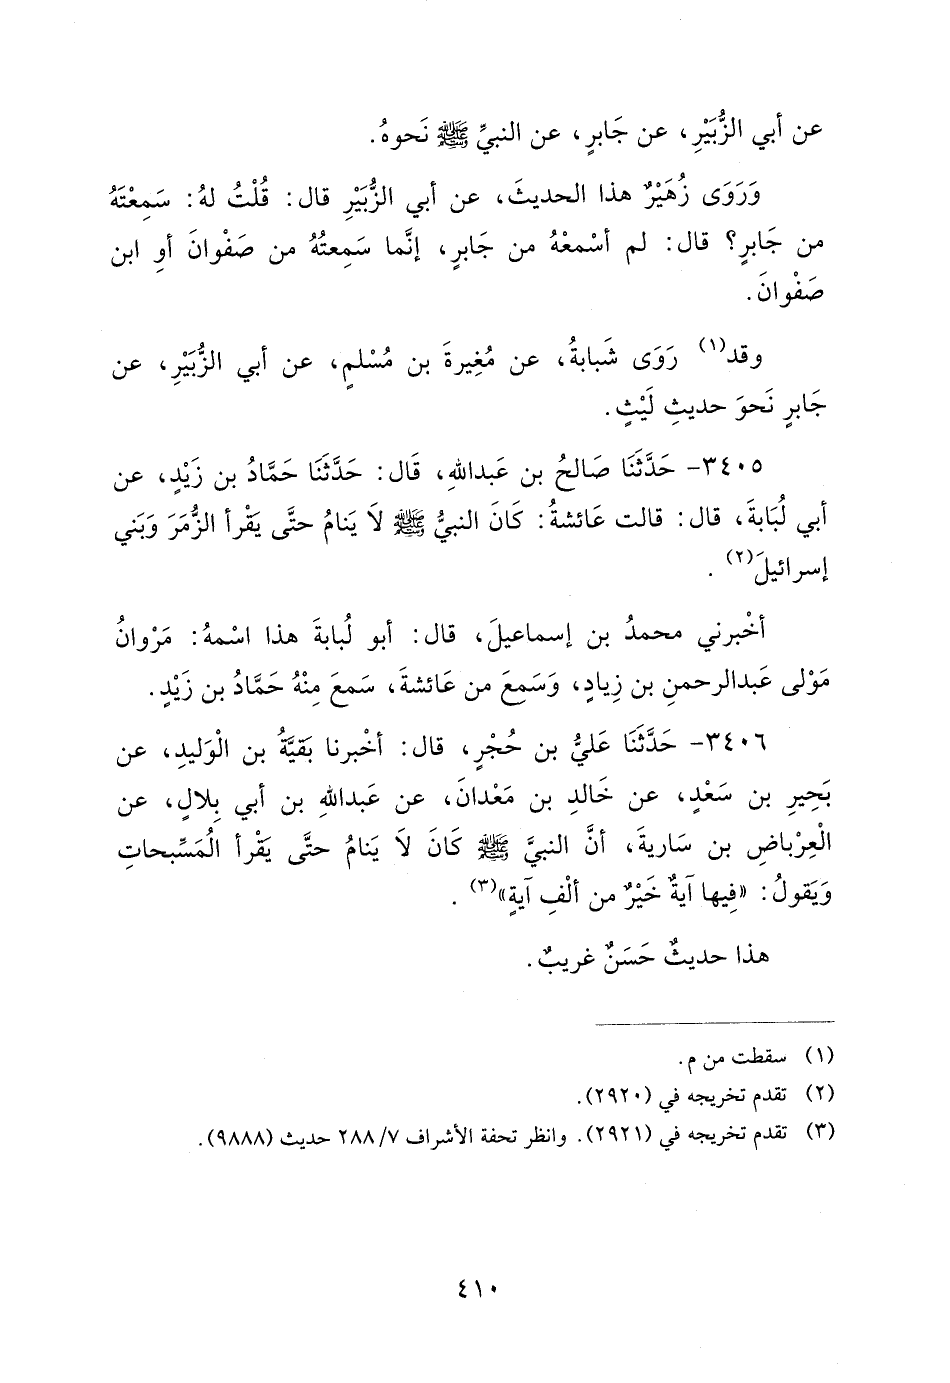 عن أبي الزُّبَيْرِ، عن جَابرٍ، عن النبيِّ ﷺ نَحوهُ.
وَرَوَى زُهَيْرٌ هذا الحديثَ، عن أبي الزُّبَيْرِ قال: قُلْتُ لهُ: سَمِعْتَهُ
من جَابرٍ؟ قال: لم أسْمعْهُ من جَابرٍ، إنَّما سَمِعتُهُ من صَفْوانَ أوِ ابن
صَفْوانَ.
وقد(١) رَوَى شَبابةُ، عن مُغِيرةَ بن مُسْلمٍ، عن أبي الزُّبَيْرِ، عن
جَابرٍ نَحوَ حديثِ لَيْثٍ.
٣٤٠٥- حَدَّثَنَا صَالحُ بن عَبداللهِ، قَال: حَدَّثَنَا حَمَّادُ بن زَيْدٍ، عن
أبي لُبَابةَ، قال: قالت عَائشةُ: كَانَ النبيُّ ﷺ لاَ يَنامُ حتَّى يَقْرأ الزُّمَرَ وَبَني
إسرائيلَ(٢) .
أخْبرني محمدُ بن إسماعيلَ، قال: أبو لُبابةَ هذا اسْمهُ: مَرْوانُ
مَوْلى عَبدالرحمنِ بن زِيادٍ، وَسَمعَ من عَائشةَ، سَمعَ مِنْهُ حَمَّادُ بن زَيْدٍ.
٣٤٠٦- حَدَّثَنَا عَليُّ بن حُجْرٍ، قال: أخْبرنا بَقيَّةُ بن الْوَليدِ، عن
بَحِيرِ بن سَعْدٍ، عن خَالدِ بن مَعْدانَ، عن عَبداللهِ بن أبي بِلالٍ، عن
الْعِرْباضِ بن سَاريةَ، أنَّ النبيَّ ﷺ كَانَ لاَ يَنامُ حتَّى يَقْرأ الْمُسَبِّحاتِ
وَيَقولُ: «فِيها آيةٌ خَيْرٌ من ألْفِ آيةٍ»(٣) .
هذا حديثٌ حَسَنٌ غريبٌ.
(١) سقطت من م.
(٢) تقدم تخريجه في (٢٩٢٠).
(٣) تقدم تخريجه في (٢٩٢١). وانظر تحفة الأشراف ٧/ ٢٨٨ حديث (٩٨٨٨).
٤١٠